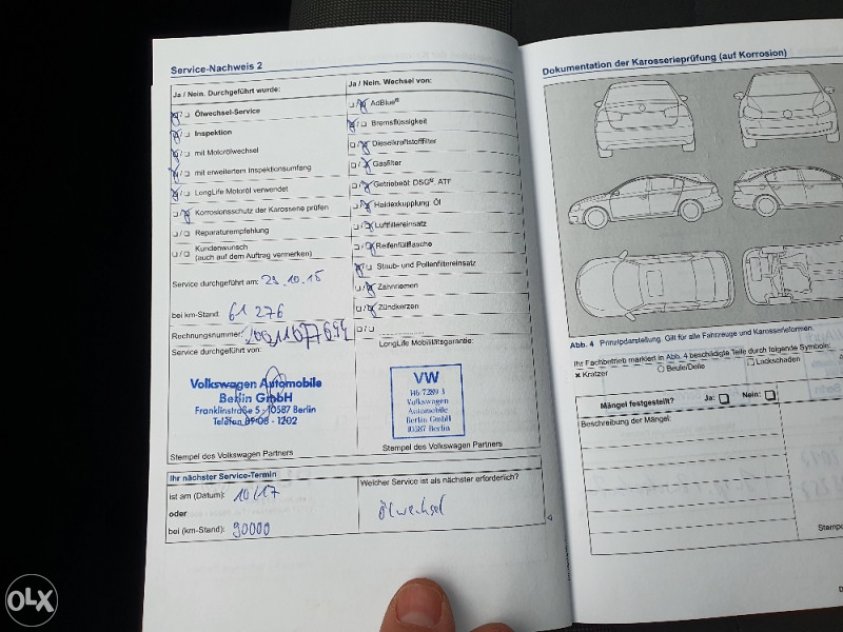 Service-Nachweis 2
Ja / Nein. Durchgeführt wurde:
Ölwechsel-Service
Inspektion
mit Motorölwechsel
mit erweitertem Inspektionsumfang
LongLife Motoröl verwendet
Korrosionsschutz der Karosserie prüfen
Reparaturempfehlung
Kundenwunsch
(auch auf dem Auftrag vermerken)
Service durchgeführt am: 29.10.15
bei km-Stand: 61 276
Rechnungsnummer:
Service durchgeführt von:
Volkswagen Automobile
Berlin GmbH
Franklinstraße 5 · 10587 Berlin
Telefon 89 08 - 1202
Stempel des Volkswagen Partners
Ja / Nein. Wechsel von:
AdBlue®
Bremsflüssigkeit
Dieselkraftstofffilter
Gasfilter
Getriebeöl: DSG®, ATF
Haldexkupplung: Öl
Luftfiltereinsatz
Reifenfüllflasche
Staub- und Pollenfiltereinsatz
Zahnriemen
Zündkerzen
LongLife Mobilitätsgarantie:
VW
Volkswagen
Automobile
Berlin GmbH
10587 Berlin
Stempel des Volkswagen Partners
Ihr nächster Service-Termin
ist am (Datum): 10/17
oder
bei (km-Stand): 90000
Welcher Service ist als nächster erforderlich?
Ölwechsel
Dokumentation der Karosserieprüfung (auf Korrosion)
Abb. 4 Prinzipdarstellung. Gilt für alle Fahrzeuge und Karosserieformen.
Ihr Fachbetrieb markiert in Abb. 4 beschädigte Teile durch folgende Symbole:
× Kratzer
○ Beule/Delle
□ Lackschaden
Mängel festgestellt? Ja: Nein:
Beschreibung der Mängel:
OLX